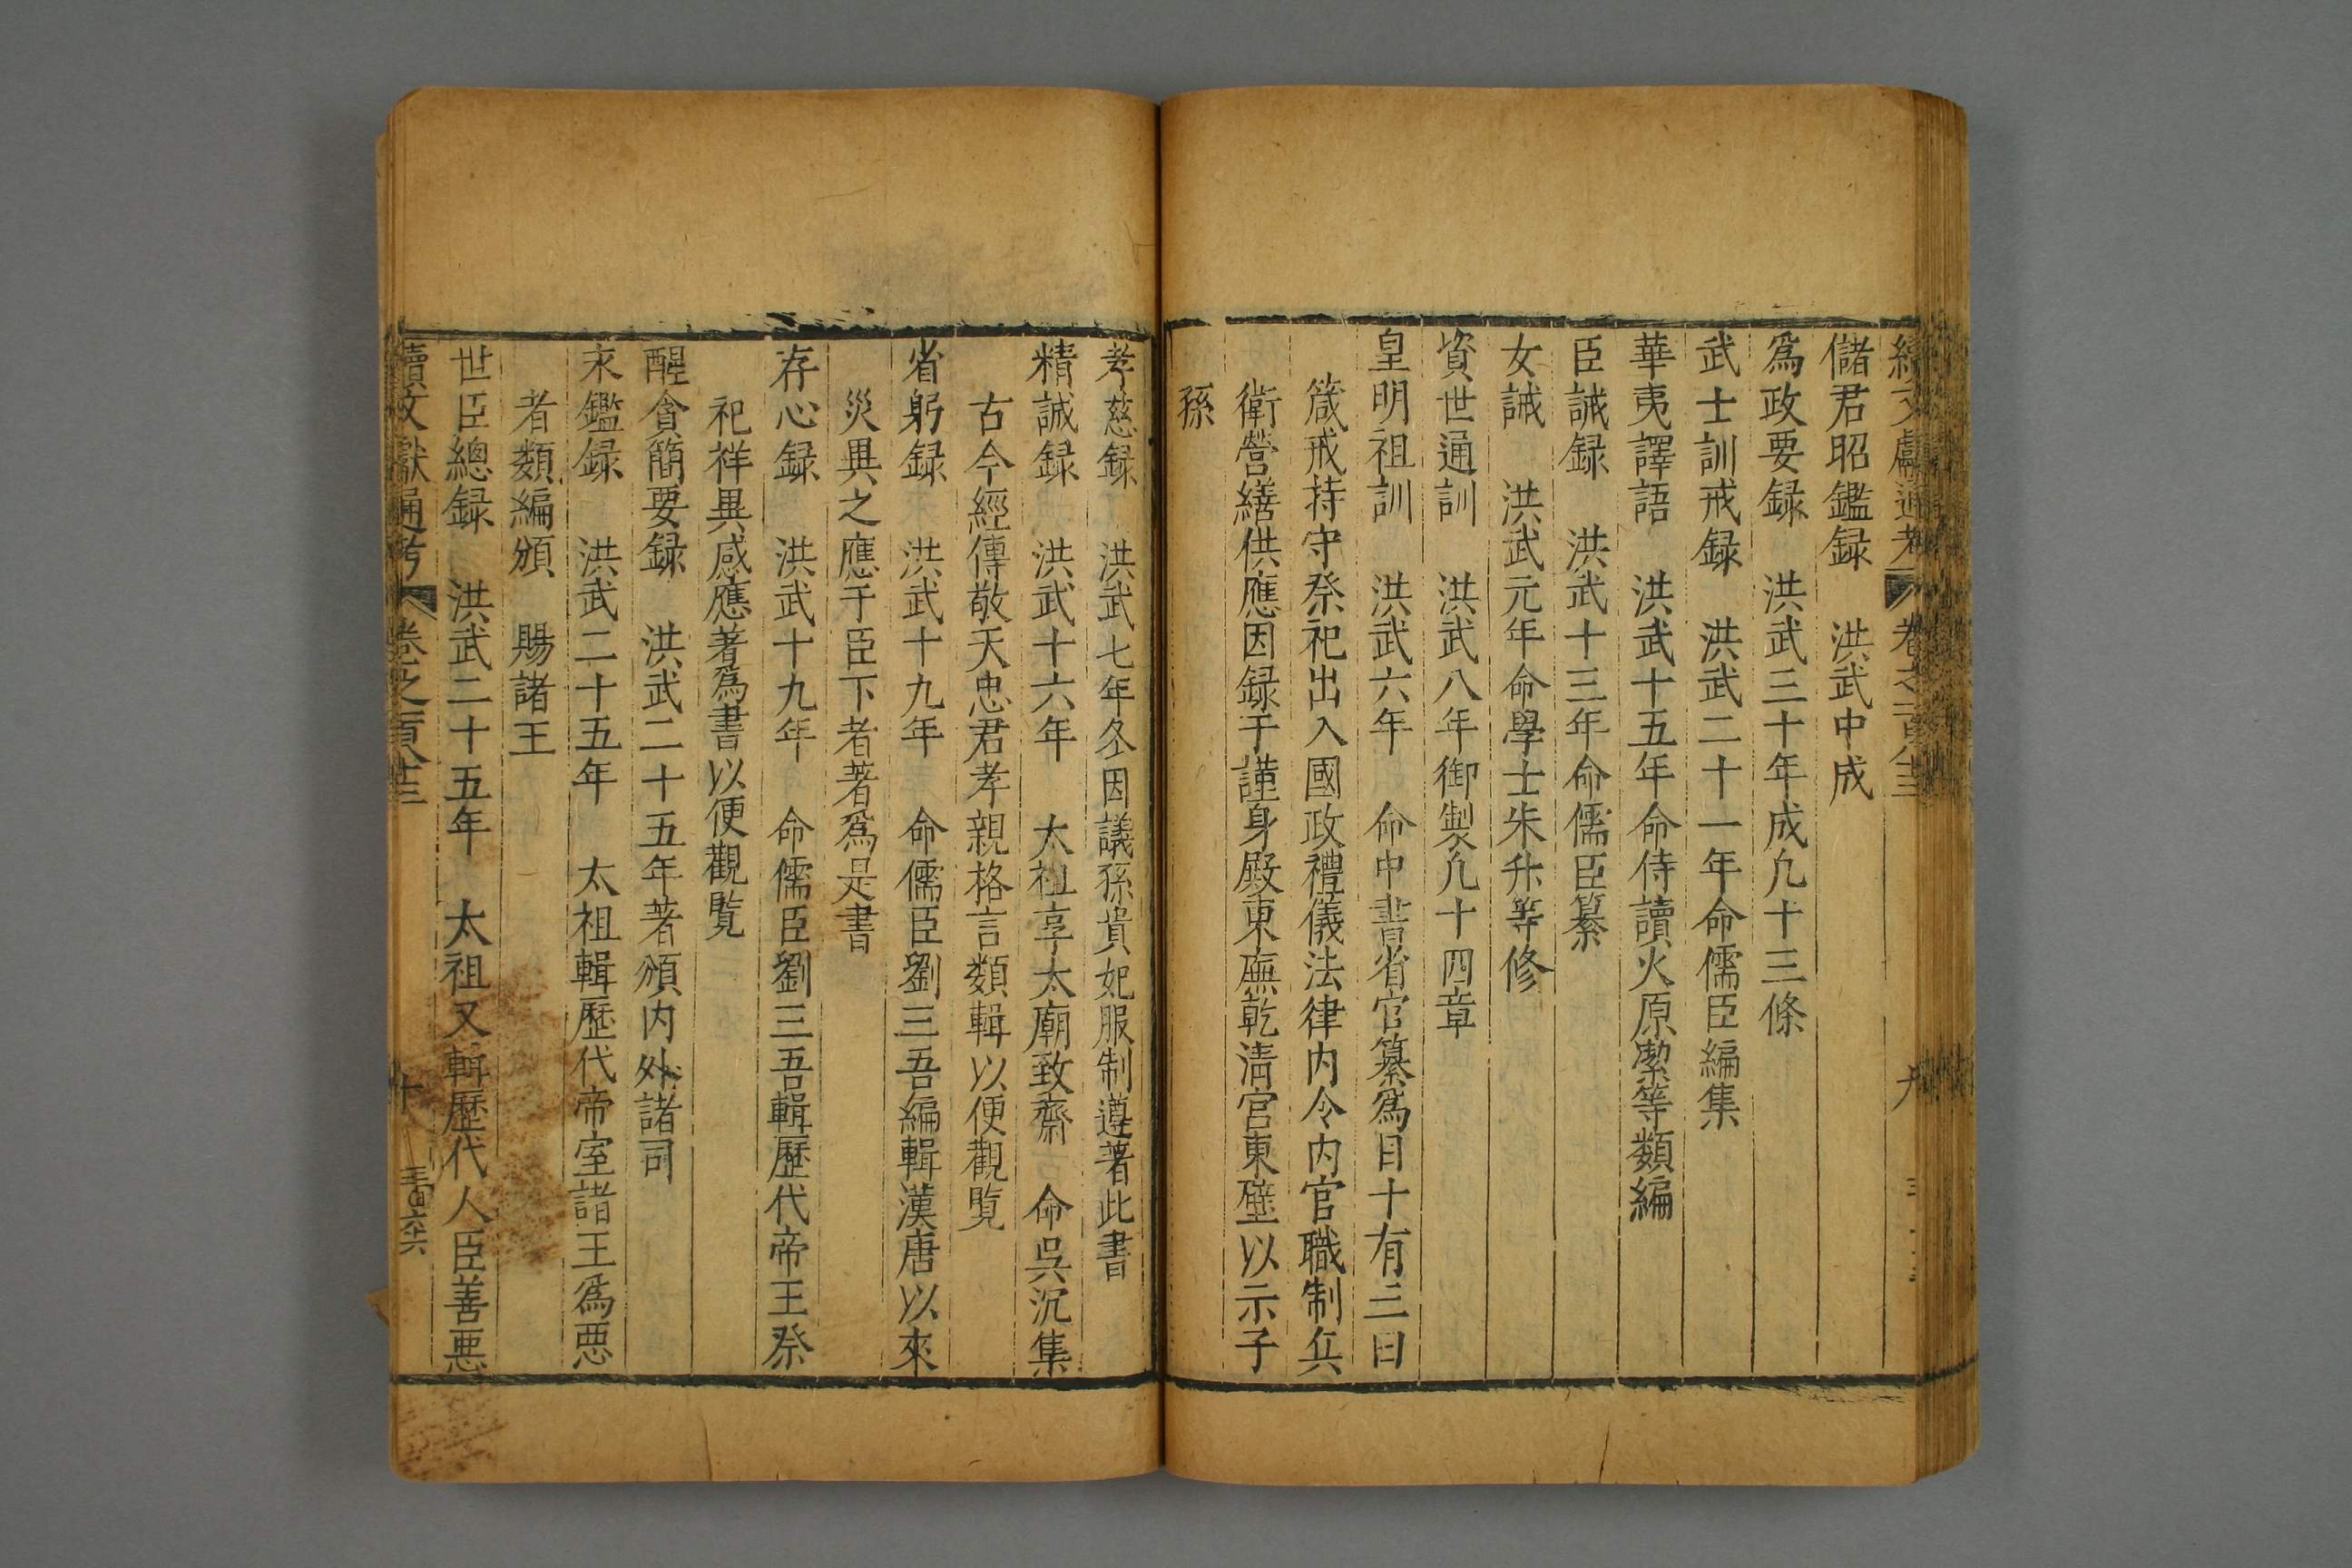 續文獻通考 卷之一百八十三 九
儲君昭鑑録 洪武中成
爲政要録 洪武三十年成凢十三條
武士訓戒録 洪武二十一年命儒臣編集
華夷譯語 洪武十五年命侍讀火原潔等類編
臣誡録 洪武十三年命儒臣纂
女誡 洪武元年命學士朱升等修
資世通訓 洪武八年御製凢十四章
皇明祖訓 洪武六年 命中書省官纂爲目十有三曰
箴戒持守祭祀出入國政禮儀法律内令内官職制兵
衛營繕供應因録于謹身殿東廡乾淸宮東壁以示子
孫
孝慈録 洪武七年冬因議孫貴妃服制遵著此書
精誠録 洪武十六年 太祖享太廟致齋 命吳沉集
古今經傳敬天忠君孝親格言類輯以便觀覧
省躬録 洪武十九年 命儒臣劉三吾編輯漢唐以來
災異之應于臣下者著爲是書
存心録 洪武十九年 命儒臣劉三吾輯歷代帝王祭
祀祥異感應著爲書以便觀覧
醒貪簡要録 洪武二十五年著頒内外諸司
永鑑録 洪武二十五年 太祖輯歷代帝室諸王爲惡
者類編頒 賜諸王
世臣總録 洪武二十五年 太祖又輯歷代人臣善悪
續文獻通考 卷之一百八十三 十